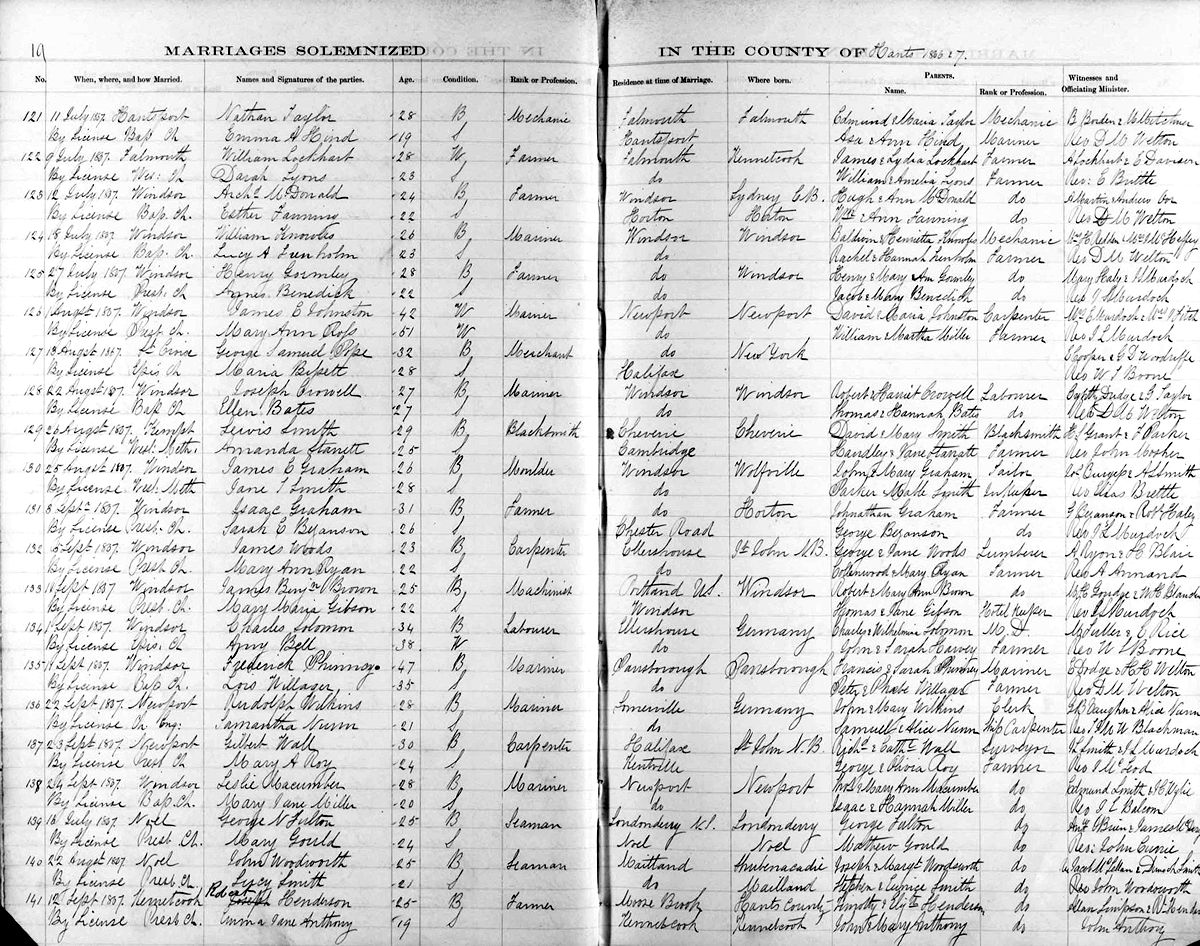 19
MARRIAGES SOLEMNIZED IN THE COUNTY OF Hants 1866 & 7.
No. When, where, and how Married. Names and Signatures of the parties. Age. Condition. Rank or Profession. Residence at time of Marriage. Where born. PARENTS. Name. Rank or Profession. Witnesses and Officiating Minister.
121 11 July 1867 Hantsport Nathan Taylor 28 B Mechanic Falmouth Falmouth Edmund & Maria Taylor Mechanic B Borden &
By License Bap Ch Emma A Hind 19 S Hantsport Asa & Ann Hind Mariner Rev D M Welton
122 9 July 1867. Falmouth William Lockhart 28 W Farmer Falmouth Kennetcook James & Lydia Lockhart Farmer A Lockhart & E Davison
By License Wes: Ch Sarah Lyons 23 S do William & Amelia Lyons Farmer Rev: E Brettle
123 12 July 1867. Windsor Archd McDonald 24 B Farmer Windsor Sydney C.B. Hugh & Ann McDonald do A Martin & Andrew
By License Bap. Ch. Esther Fanning 22 S Horton Horton & Ann Fanning do Rev D M Welton
124 18 July 1867 Windsor William Knowles 26 B Mariner Windsor Windsor Baldwin & Henrietta Knowles Mechanic
By License Bap: Ch. Lucy A 23 S do Rachel & Hannah Farmer Rev D M Welton
125 27 July 1867 Windsor Henry Gormley 28 B Farmer do Windsor Henry & Mary Am Gormley do Mary Healy & J Murdoch
By License Pres: Ch Agnes Benedick 22 S do Jacob & Mary Benedich do Rev J Murdoch
126 August 1867 Windsor James E Johnston 42 W Mariner Newport Newport David & Maria Johnston Carpenter
By License Pres. Ch. Mary Ann Ross 51 W do William & Martha Miller Farmer Rev J L Murdoch
127 13 Augst 1867. St Croix George Samuel Pope 32 B Merchant do New York J Cooper & G D Woodruffe
By License Epis Ch Maria Bissett 28 S Halifax Rev W J Boone
128 22 Augst 1867. Windsor Joseph Crowell 27 B Mariner Windsor Windsor Robert & Harriet Crowell Labourer Dodge & J Taylor
By License Bap Ch Ellen Bates 27 S do Thomas & Hannah Bates do Rev D M Welton
129 26 Augst 1867. Kempt Lewis Smith 29 B Blacksmith Cheverie Cheverie David & Mary Smith Blacksmith Grant & F Parker
By License Wesl. Meth: Amanda 25 S Cambridge & Jane Farmer Rev John Mosher
130 25 Augst 1867. Windsor James C Graham 26 B Moulder Windsor Wolfville John & Mary Graham Tailor & A S Smith
By License Wesl Meth Jane T Smith 28 S do Parker & Smith Rev Elias Brettle
131 3 Sept 1867. Windsor Isaac Graham 31 B Farmer do Horton Johnathan Graham Farmer G Beyanson & Robt Haley
By License Pres: Ch. Sarah E Beyanson 26 S Chester Road George Beyanson do Rev J L Murdoch
132 Sept 1867. Windsor James Woods 23 B Carpenter Ellershouse St John N.B. George & Jane Woods Lumberer A Ryon & H Blair
By License Prest Ch Mary Ann Ryan 22 S do Collenwood & Mary Ryan Farmer Rev A Annand
133 Sept 1867 Windsor James Benjn Brown 25 B Machinist Portland U.S. Windsor Robert & Mary Ann Brown do
By License Prest. Ch. Mary Maria Gibson 22 S Windsor Thomas & Jane Gibson Hotel Keeper Rev J L Murdoch
134 Sept 1867. Windsor Charles Solomon 34 B Labourer Ellershouse Germany Charles & Wilhelmia Solomon M. D. & C Rice
By License Epis. Ch. Amy Bell 38. W do John & Sarah Harvey Farmer Rev W J Boone
135 Sept 1867. Windsor Frederick Phinney. 47 B Mariner Parrsborough Parrsborough Francis & Sarah Phinney Mariner E Dodge & H H Welton
By License Bap Ch. Lois Willager 35 S do Peter & Phoebe Willager Farmer Rev D M Welton
136 22 Sept 1867. Newport Rudolph Wilkins 28 B Mariner Somerville Germany John & Mary Wilkins Clerk J B Vaughn & Alice Nunn
By License Ch. Eng: Samantha Nunn 21 S do Samuel & Alice Nunn Ship Carpenter Blachman
137 23 Sept 1867. Newport Gilbert Wall 30 B Carpenter Halifax St John N.B. Richd & Cathe Wall Surveyor Smith & J L Murdoch
By License Prest Ch Mary A Roy 24 S Kentville George & Olivia Roy Farmer Rev J McLeod
138 24 Sept 1867. Windsor Leslie Macumber 28 B Mariner Newport Newport & Mary Ann Macumber do Edmund Smith &
By License Bap. Ch. Mary Jane Miller 20 S do Isaac & Hannah Miller do Rev J L Balcom
139 16 July 1867. Noel George N Fulton 25 B Seaman Londonderry N.S. Londonderry George Fulton do O'Brien & James
By License Prest Ch. Mary Gould 24 S Noel Noel Mathew Gould do Rev: John Currie
140 22 Augst 1867 Noel John Woodworth 25 B Seaman Maitland Shubenacadie Joseph & Margt Woodworth do
By License Presb. Ch. Lucy Smith 21 S do Maitland Stephen & Eunice Smith do Rev John Woodworth
141 12 Sept 1867. Kennetcook Robert Henderson 25 B Farmer Moose Brook Hants County Timothy & Elizth Henderson do Allan Simpson &
By License Prest Ch. Emma Jane Anthony 19 S Kennetcook Kennetcook John & Mary Anthony do John Anthony